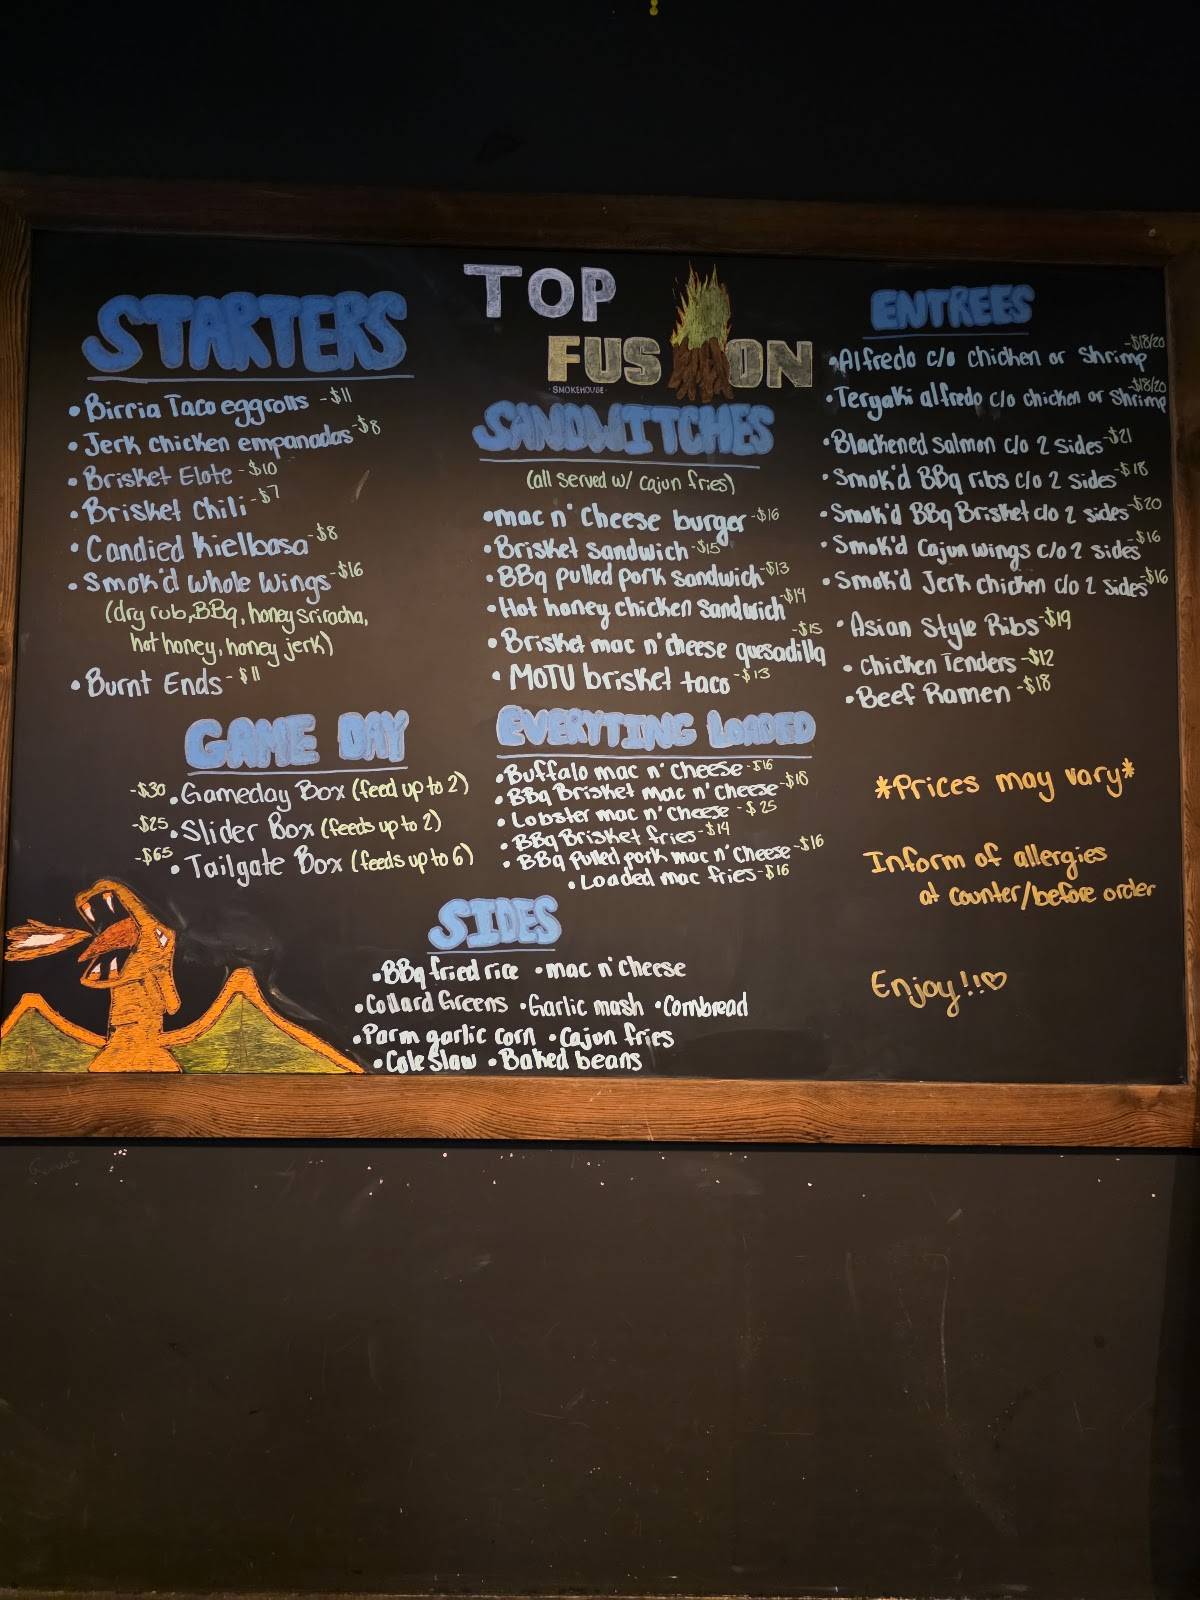 TOP
FUSION
·SMOKEHOUSE·
STARTERS
• Birria Taco eggrolls -$11
• Jerk chicken empanadas -$8
• Brisket Elote -$10
• Brisket Chili -$7
• Candied Kielbasa -$8
• Smok'd whole wings -$16
(dry rub, BBq, honey sriracha,
hot honey, honey jerk)
• Burnt Ends -$11
GAME DAY
-$30 • Gameday Box (feed up to 2)
-$25 • Slider Box (feeds up to 2)
-$65 • Tailgate Box (feeds up to 6)
SANDWITCHES
(all served w/ cajun fries)
• mac n' Cheese burger -$16
• Brisket sandwich -$15
• BBq pulled pork sandwich -$13
• Hot honey chicken sandwich -$14
• Brisket mac n' cheese quesadilla -$15
• MOTU brisket taco -$13
EVERYTING LOADED
• Buffalo mac n' cheese -$16
• BBq Brisket mac n' cheese -$18
• Lobster mac n' Cheese -$25
• BBq Brisket fries -$14
• BBq Pulled pork mac n' Cheese -$16
• Loaded mac fries -$16
SIDES
• BBq fried rice • mac n' cheese
• Collard Greens • Garlic mash • Cornbread
• Parm garlic corn • Cajun fries
• Cole Slaw • Baked beans
ENTREES
• Alfredo c/o chicken or Shrimp -$18/20
• Teryaki alfredo c/o chicken or Shrimp -$18/20
• Blackened Salmon c/o 2 sides -$21
• Smok'd BBq ribs c/o 2 sides -$18
• Smok'd BBq Brisket c/o 2 sides -$20
• Smok'd Cajun wings c/o 2 sides -$16
• Smok'd Jerk chicken c/o 2 sides -$16
• Asian Style Ribs -$19
• Chicken Tenders -$12
• Beef Ramen -$18
*Prices may vary*
Inform of allergies
at counter/before order
Enjoy!!♡